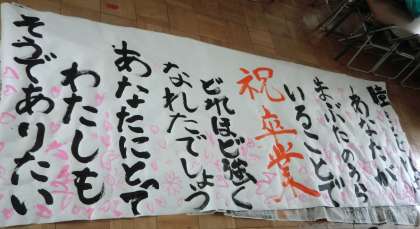 あなたが
まぶたのうら
いることで
祝卒業
どれほど強く
なれたでしょう
あなたにとって
わたしも
そうでありたい